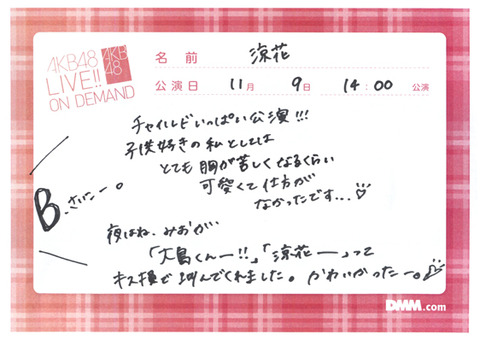 AKB48
LIVE!!
ON DEMAND
AKB
48
名前 涼花
公演日 11月 9日 14:00 公演
チャイルドいっぱい公演!!!
子供好きの私としては
とても胸が苦しくなるくらい
可愛くて仕方が
なかったです...♡
B
さいこー。
夜はね、みおが
「大島くんー!!」「涼花ー」って
キス顔で叫んでくれました。かわいかったー。♡
DMM.com